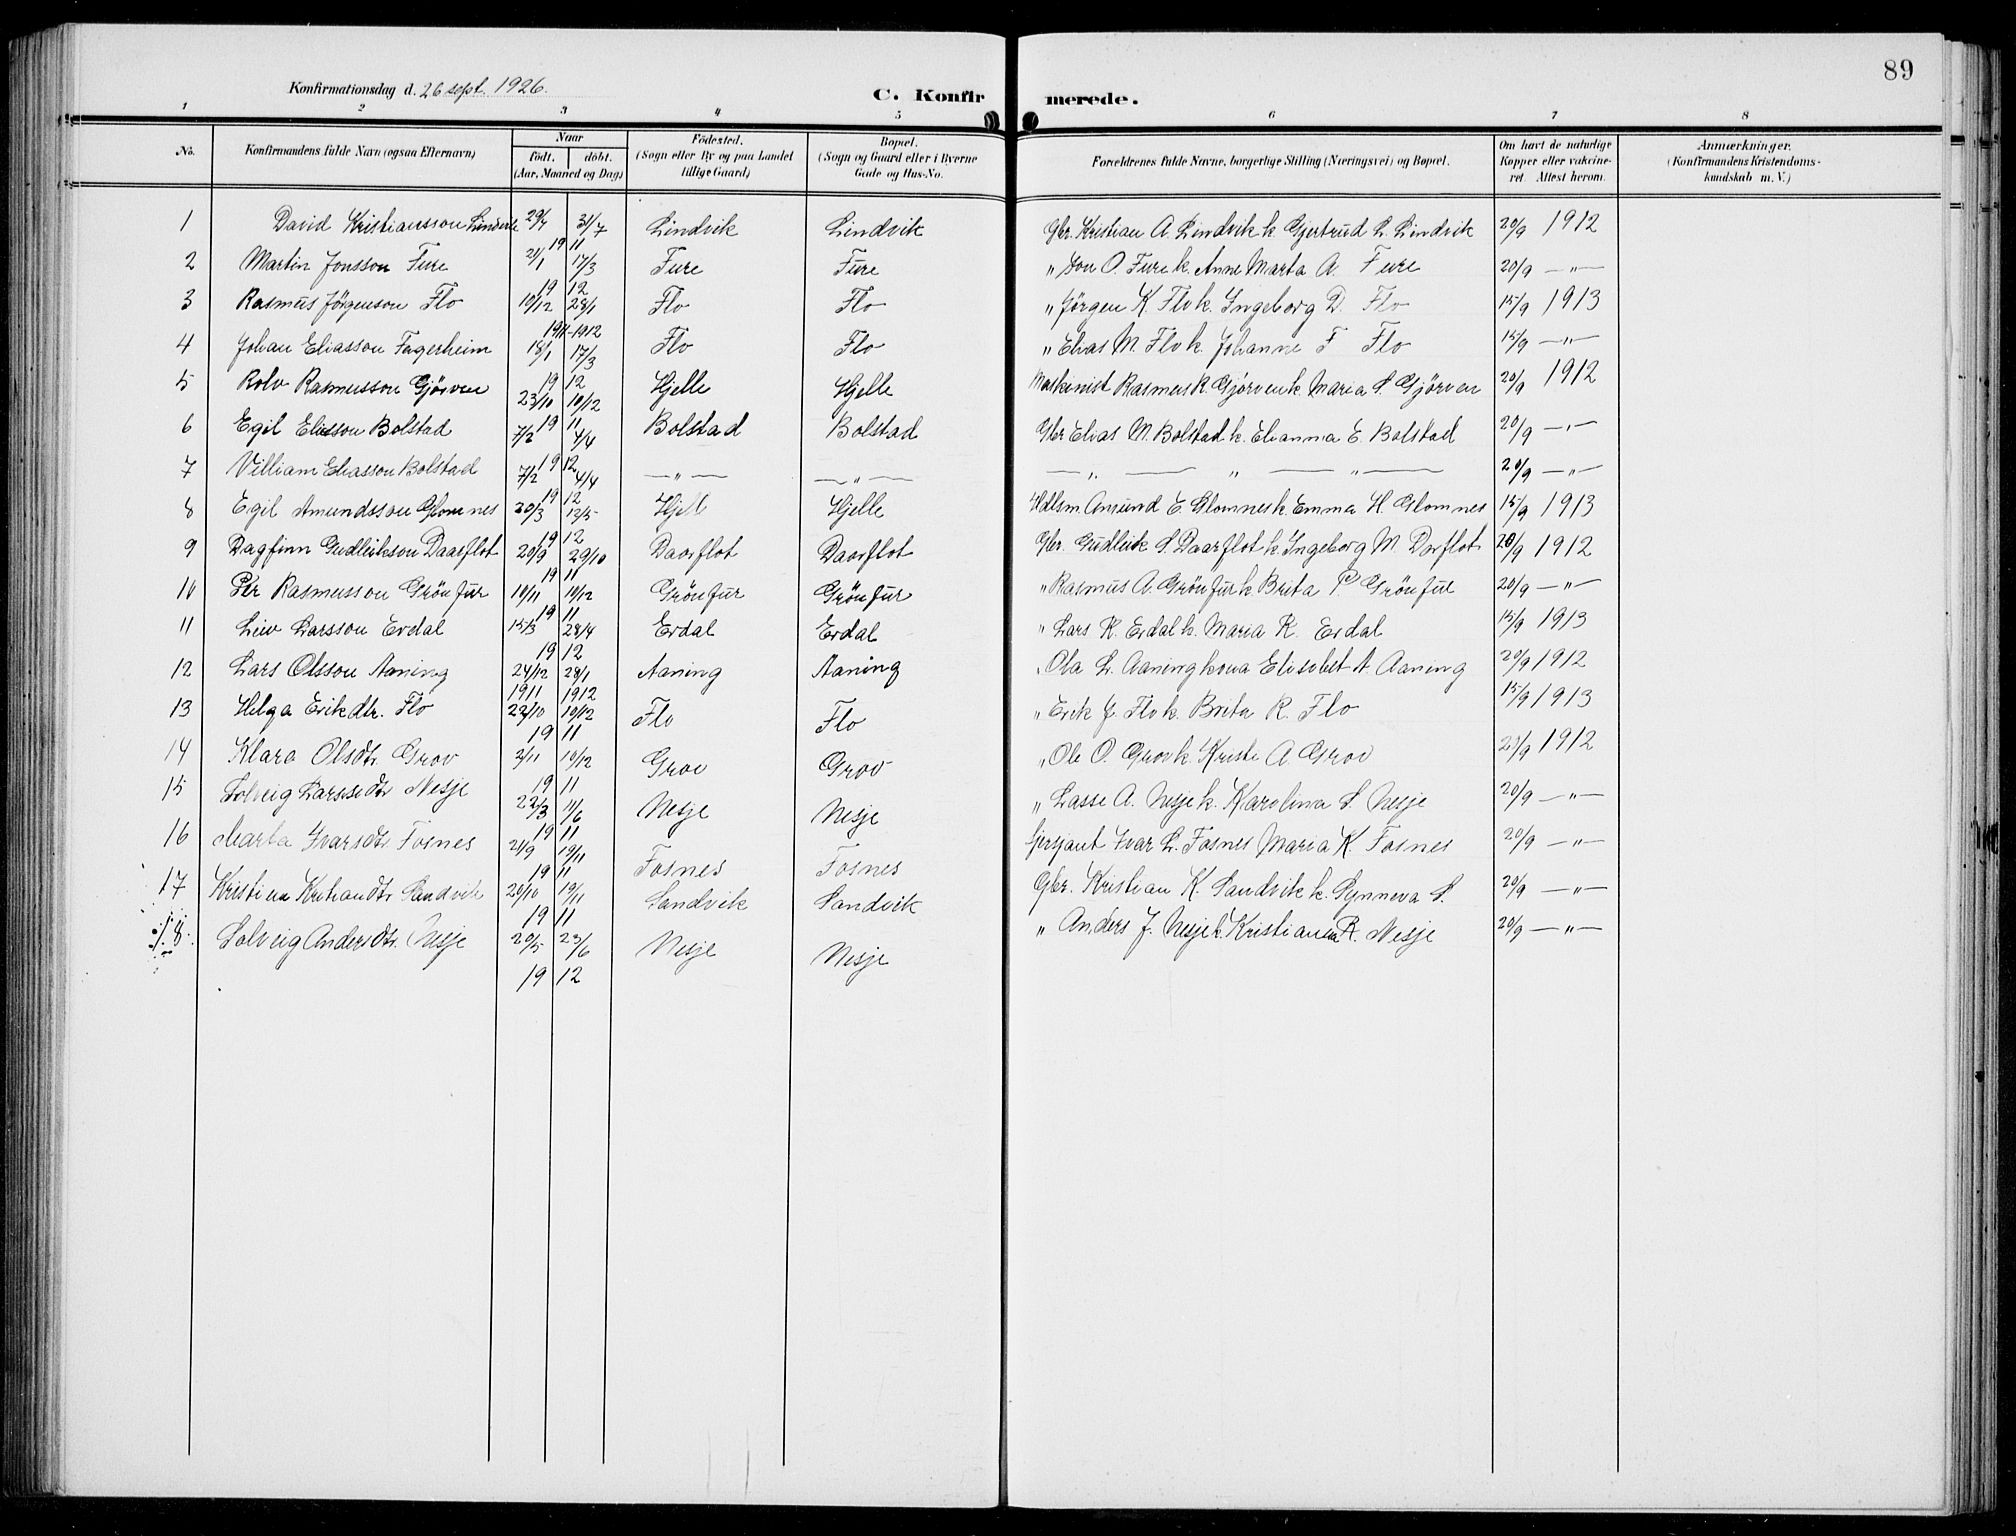 89
Konfirmationsdag d. 26 sept. 1926.
C. Konfirmerede.
1 2 3 4 5 6 7 8
No. Konfirmandens fulde Navn (ogsaa Efternavn) Naar født. døbt. (Aar, Maaned og Dag) Födested. (Sogn eller By og paa Landet tillige Gaard) Bopæl. (Sogn og Gaard eller i Byerne Gade og Hus-No. Forældrenes fulde Navne, borgerlige Stilling (Næringsvei) og Bopæl. Om havt de naturlige Kopper eller vakcineret. Attest herom. Anmærkninger. (Konfirmandens Kristendomskundskab m. V.)
1 David Kristiansson 29/7 31/7 Lindvik Lindvik Gbr. Kristian A. Lindvik k. Gjertrud L Lindvik 20/9 1912
19 11
2 Martin Jonsson Fure 21/1 17/3 Fure Fure " Jon O. Fure k. Anne Marta A. Fure 20/9 — " —
19 12
3 Rasmus Jørgenson Flo 10/12 28/1 Flo Flo " Jørgen K Flo k. Ingeborg D. Flo 15/9 1913
1911-1912
4 Johan Eliasson Fagerheim 18/1 17/3 Flo Flo " Elias M. Flo k. Johanne F Flo 15/9 — " —
19 12
5 Rolv Rasmusson Gjörven 23/10 10/12 Hjelle Hjelle Maskinist Rasmus R. Gjörven k. Maria S. Gjörven 20/9 1912
19 11
6 Egil Eliasson Bolstad 7/2 4/4 Bolstad Bolstad Gbr Elias M. Bolstad k. Elianna E. Bolstad 20/9 — " —
19 12
7 Villiam Eliasson Bolstad 7/2 4/4 — " — — " — — " — " — " — 20/9 — " —
19 12
8 Egil Amundsson Glomnes 20/3 12/5 Hjell Hjelle Hdlsm. Amund E. Glomnes k. Emma H Glomnes 15/9 1913
19 12
9 Dagfinn Gudleikson Daarflot 20/9 29/10 Daarflot Daarflot Gbr. Gudleik S. Daarflot k. Ingeborg M. Darflot 20/9 1912
19 11
10 Per Rasmusson Grönfur 10/11 10/12 Grönfur Grönfur " Rasmus A. Grönfur k. Brita P. Grönfur 20/9 — " —
19 11
11 Leiv Larsson Erdal 15/3 28/4 Erdal Erdal " Lars R. Erdal k. Maria K. Erdal 15/9 1913
19 12
12 Lars Olsson Aaning 24/12 28/1 Aaning Aaning " Ola L. Aaning kona Elisabet A. Aaning 20/9 1912
1911 1912
13 Helga Erikdtr. Flo 22/10 10/12 Flo Flo " Erik J. Flo k. Brita R. Flo 15/9 1913
19 11
14 Klara Olsdtr. Grov 2/11 10/12 Grov Grov " Ole O. Grov k. Kristi A. Grov 20/9 1912
19 11
15 Solveig Larssedtr Nesje 22/3 11/6 Nesje Nesje " Lasse A. Nesje k. Karolina S. Nesje 20/9 — " —
19 11
16 Marta Ivarsdtr. Fosnes 21/9 19/11 Fosnes Fosnes Sjersjant Ivar L. Fosnes Maria K Fosnes 20/9 — " —
19 11
17 Kristina Kristiandtr Sandvik 20/10 19/11 Sandvik Sandvik Gbr. Kristian K. Sandvik k. Synneva S. 20/9 — " —
19 11
18 Solveig Andersdtr. Nesje 20/5 23/6 Nesje Nesje " Anders J. Nesje k. Kristianna R. Nesje 20/9 — " —
19 12